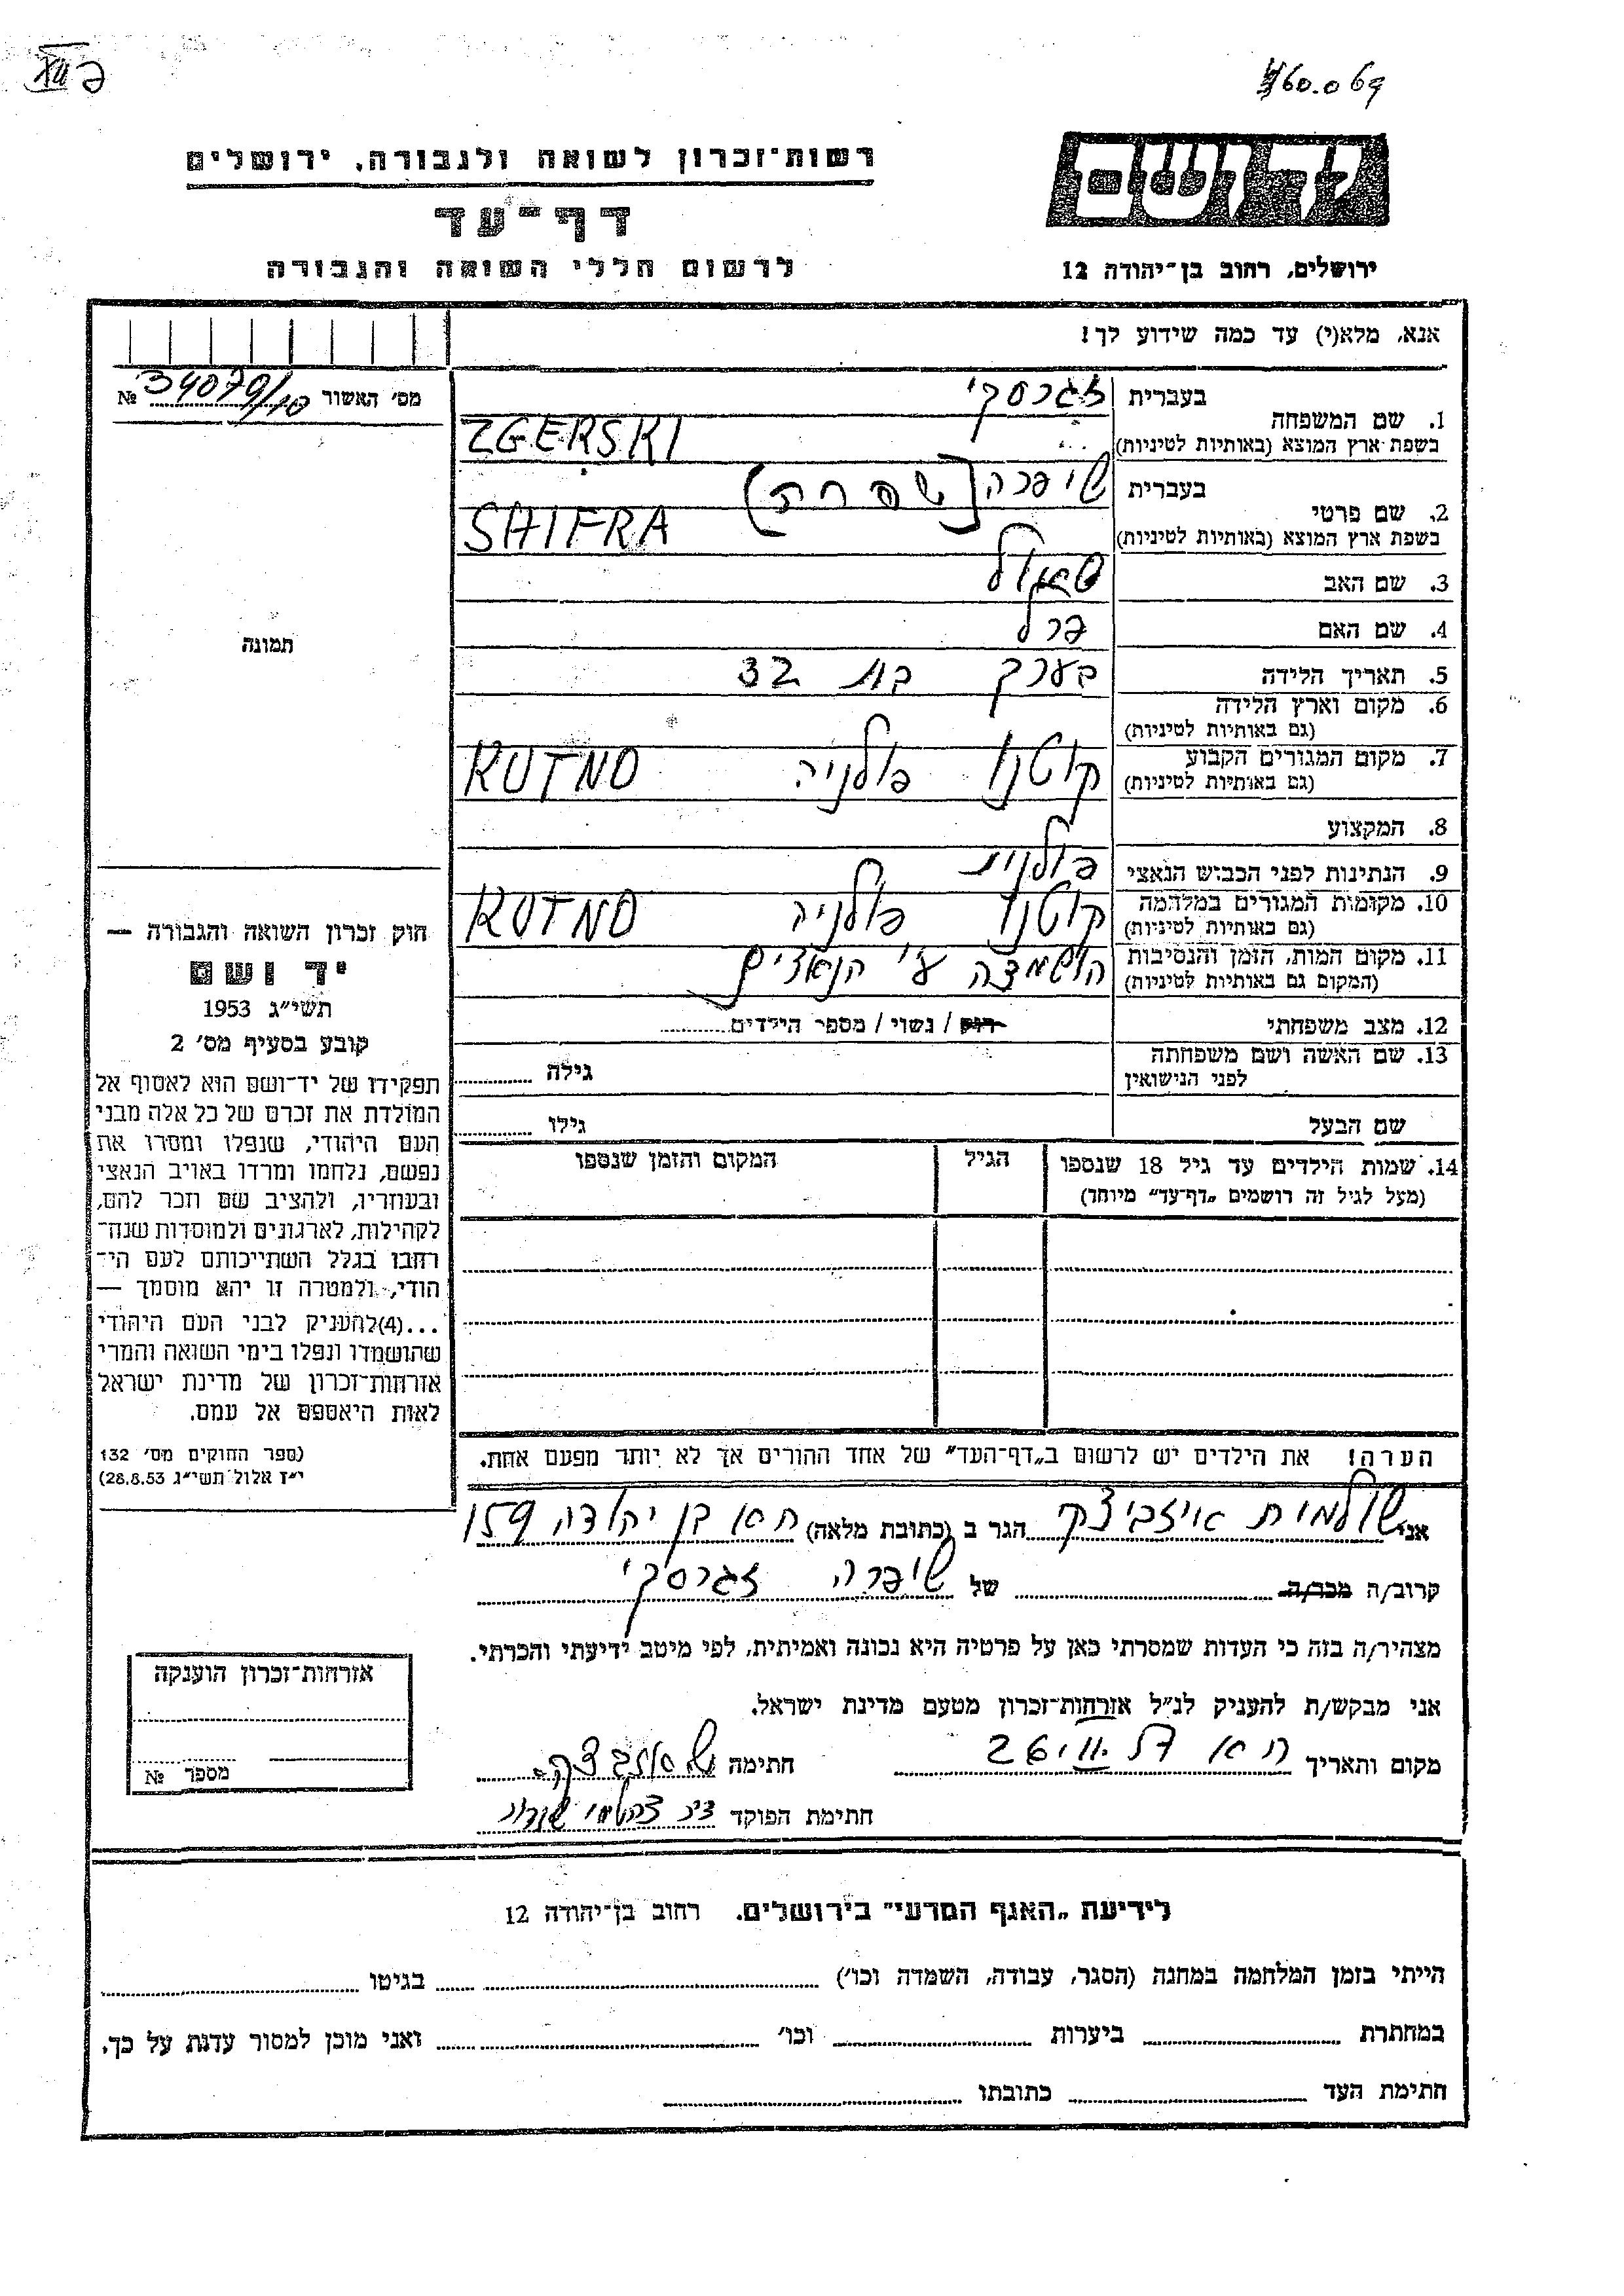 460.069
יד ושם
רשות־זכרון לשואה ולגבורה, ירושלים
דף־עד
לרשום חללי השואה והגבורה
ירושלים, רחוב בן־יהודה 12
אנא, מלא(י) עד כמה שידוע לך!
מס' האשור № 34079/10
1. שם המשפחה בעברית זגרסקי
בשפת ארץ המוצא (באותיות לטיניות) ZGERSKI
2. שם פרטי בעברית שיפרה (שפרה)
בשפת ארץ המוצא (באותיות לטיניות) SHIFRA
3. שם האב שאול
4. שם האם פרל
תמונה
5. תאריך הלידה בערך בת 32
6. מקום וארץ הלידה
(גם באותיות לטיניות)
7. מקום המגורים הקבוע קוטנו פולניה KUTNO
(גם באותיות לטיניות)
8. המקצוע
9. הנתינות לפני הכבוש הנאצי פולנית
10. מקומות המגורים במלחמה קוטנו פולניה KUTNO
(גם באותיות לטיניות)
11. מקום המות, הזמן והנסיבות הושמדה ע"י הנאצים
(המקום גם באותיות לטיניות)
12. מצב משפחתי רוק / נשוי / מספר הילדים
13. שם האשה ושם משפחתה גילה
לפני הנישואין
שם הבעל גילו
14. שמות הילדים עד גיל 18 שנספו הגיל המקום והזמן שנספו
(מעל לגיל זה רושמים „דף־עד” מיוחד)
חוק זכרון השואה והגבורה —
יד ושם
תשי״ג 1953
קובע בסעיף מס' 2
תפקידו של יד־ושם הוא לאסוף אל
המולדת את זכרם של כל אלה מבני
העם היהודי, שנפלו ומסרו את
נפשם, נלחמו ומרדו באויב הנאצי
ובעוזריו, ולהציב שם וזכר להם,
לקהילות, לארגונים ולמוסדות שנה־
רחבו בגלל השתייכותם לעם הי־
הודי, ולמטרה זו יהא מוסמך —
...(4)להעניק לבני העם היהודי
שהושמדו ונפלו בימי השואה והמרי
אזרחות־זכרון של מדינת ישראל
לאות היאספם אל עמם.
(ספר החוקים מס' 132
י״ז אלול תשי״ג 28.8.53)
הערה! את הילדים יש לרשום ב„דף־העד” של אחד ההורים אך לא יותר מפעם אחת.
אני שולמית אייזביצקי הגר ב (כתובת מלאה) ת"א בן יהודה 159
קרוב/ה מכר/ה של שיפרה זגרסקי
מצהיר/ה בזה כי העדות שמסרתי כאן על פרטיה היא נכונה ואמיתית, לפי מיטב ידיעתי והכרתי.
אני מבקש/ת להעניק לנ״ל אזרחות־זכרון מטעם מדינת ישראל.
מקום ותאריך ת"א חתימה
חתימת הפוקד
אזרחות־זכרון הוענקה
מספר №
לידיעת „האגף המדעי” בירושלים. רחוב בן־יהודה 12
הייתי בזמן המלחמה במחנה (הסגר, עבודה, השמדה וכו') בגיטו
במחתרת ביערות וכו' ואני מוכן למסור עדות על כך.
חתימת העד כתובתו